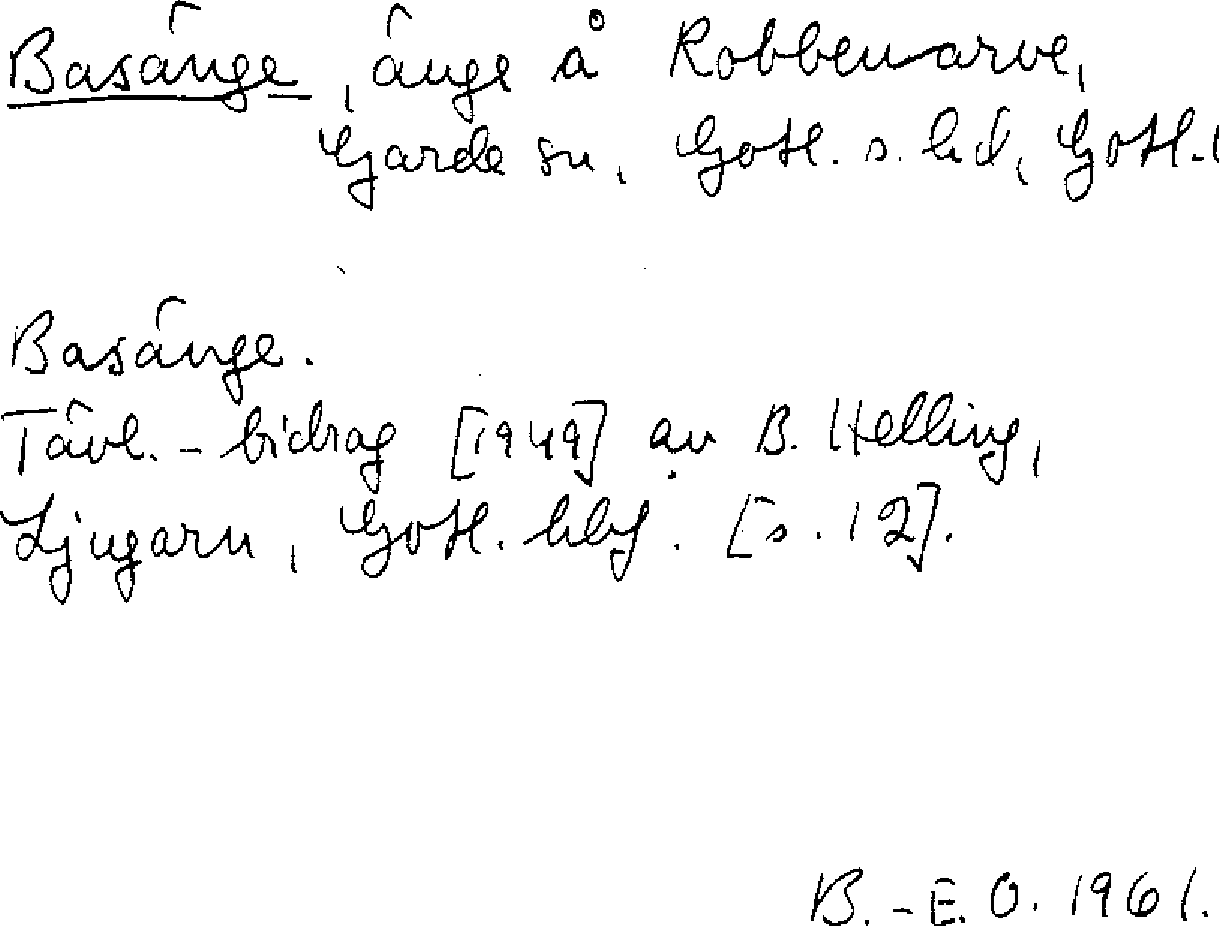 Basänge, änge å Robbenarve,
Garde sn, Gotl. s. hd, Gotl. l
Basänge.
Tävl.-bidrag [1949] av B. Helling,
Ljugarn, Gotl. hbf. [s. 12].
B.-E. O. 1961.